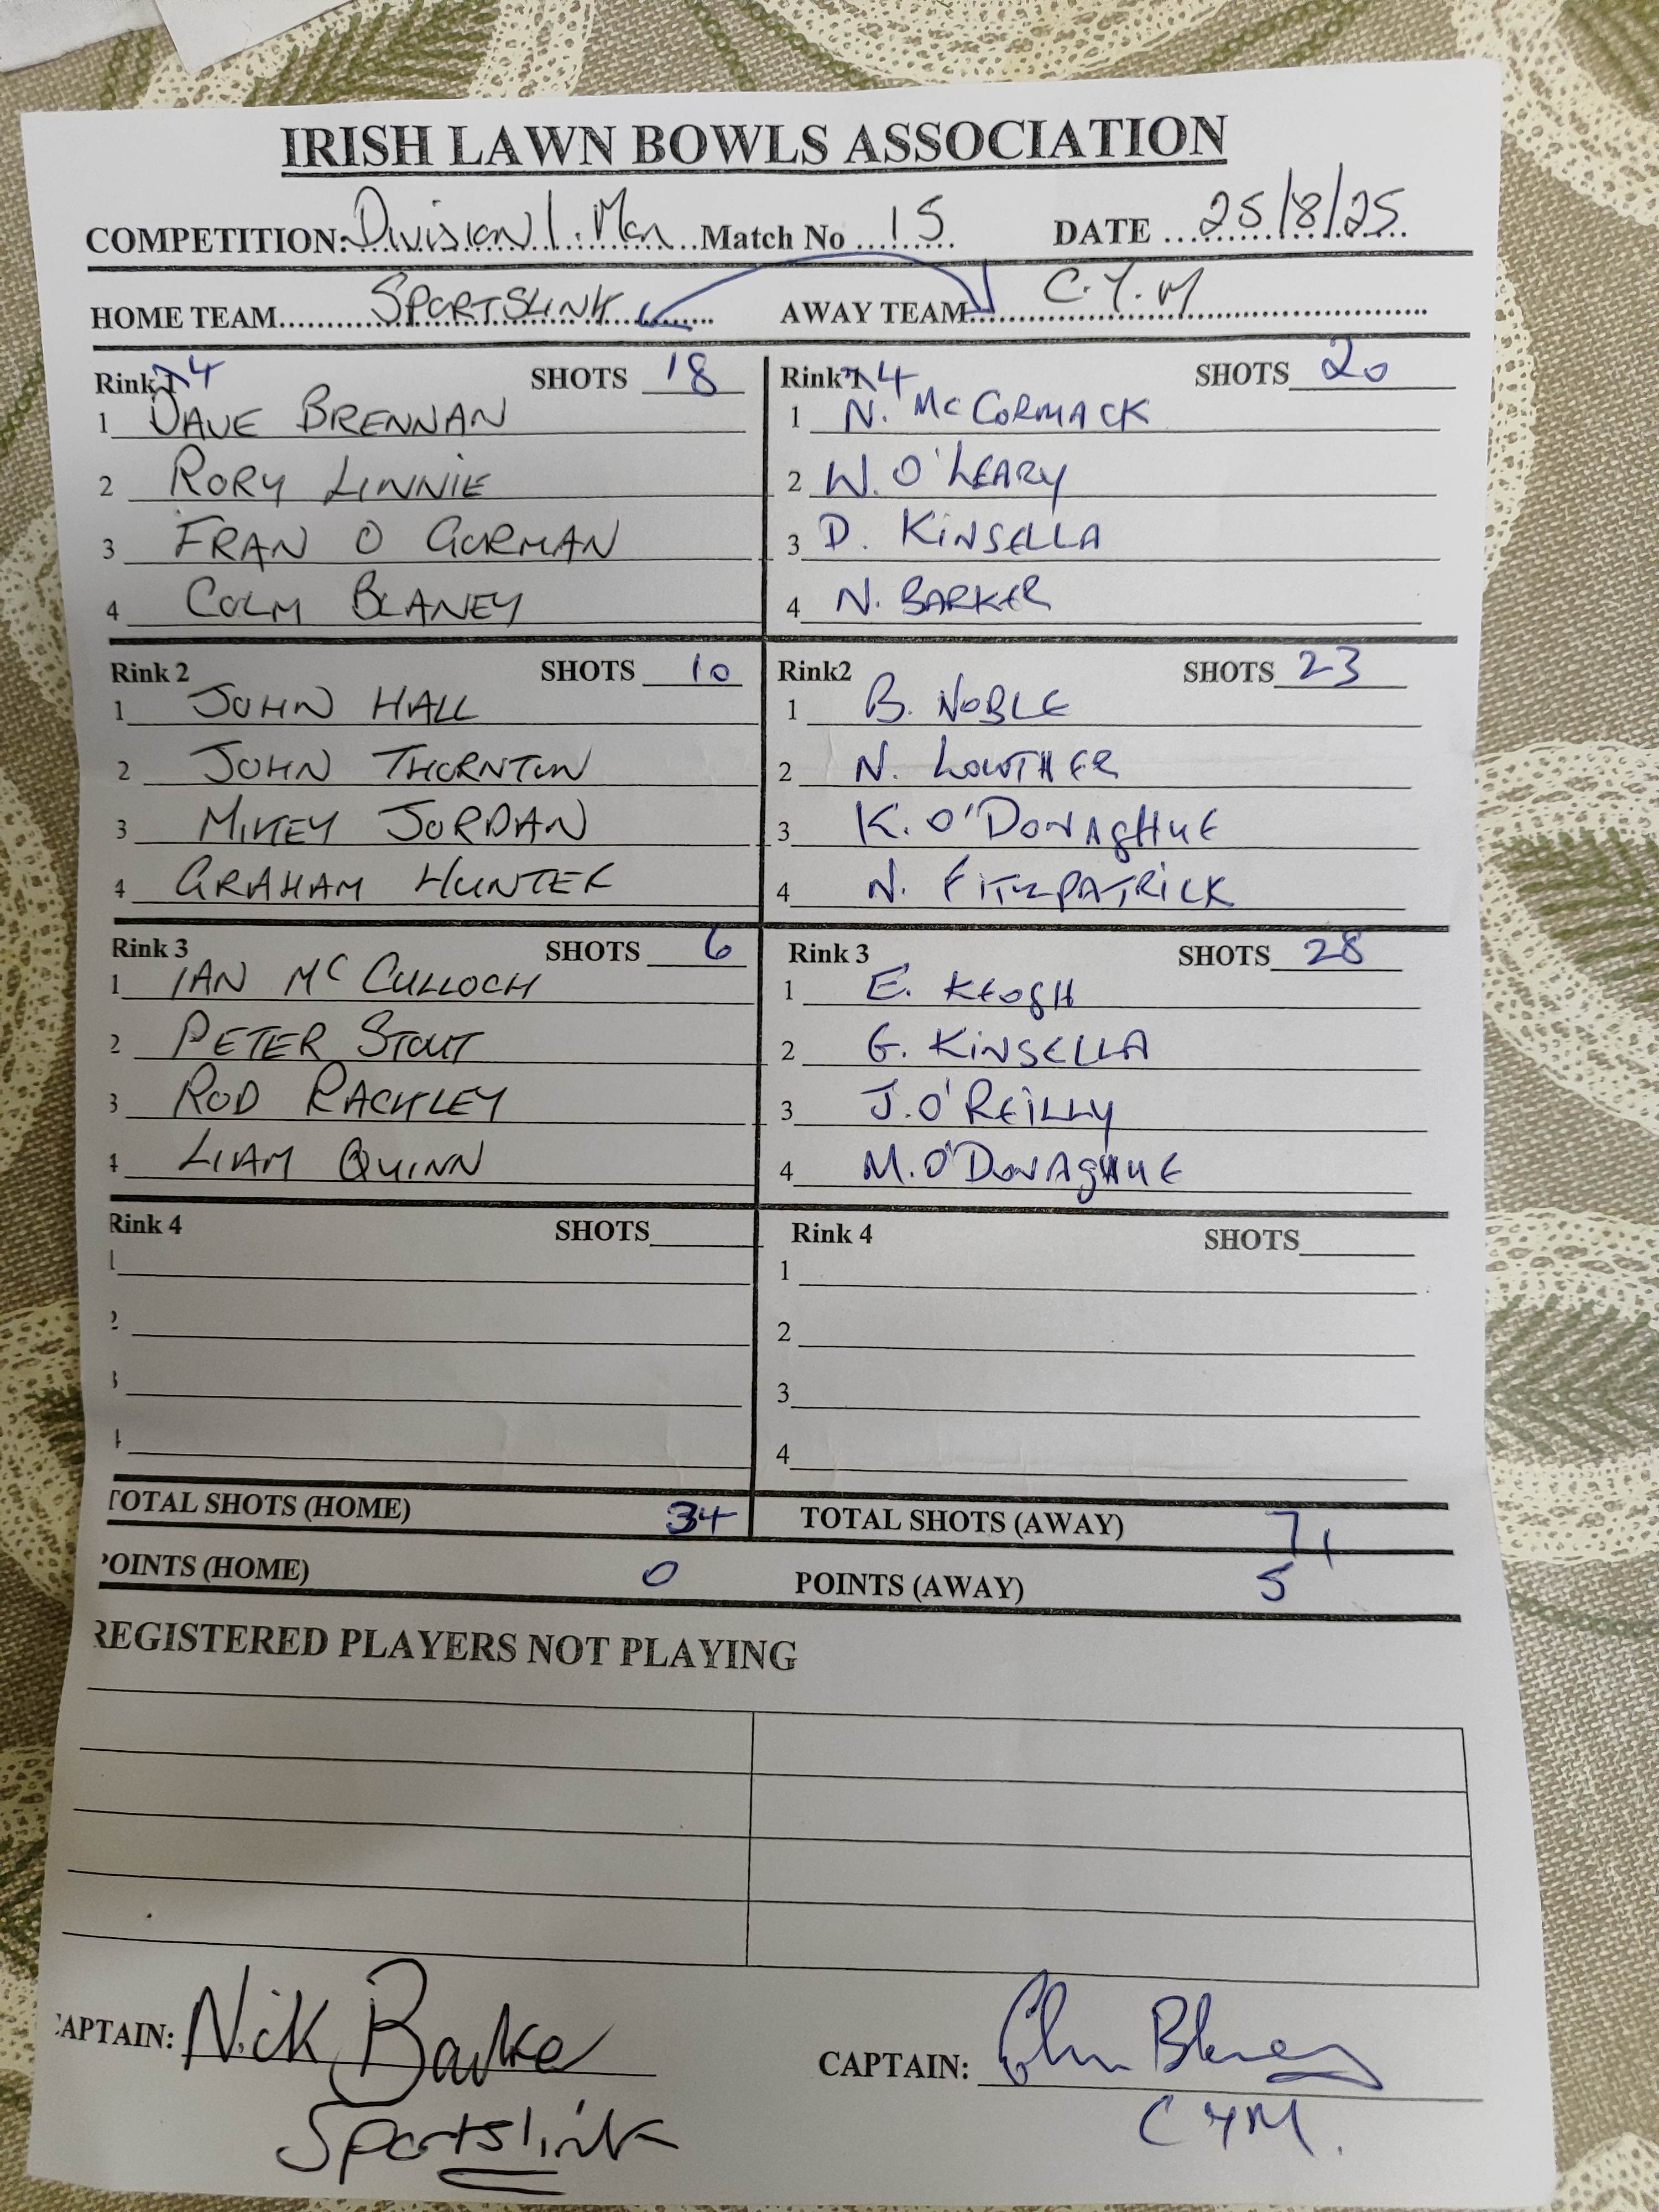 IRISH LAWN BOWLS ASSOCIATION
COMPETITION: Division 1. Men Match No 15 DATE 25/8/25
HOME TEAM SPORTSLINK AWAY TEAM C.Y.M
Rink 1 4 SHOTS 18
1 DAVE BRENNAN
2 RORY LINNIE
3 FRAN O GORMAN
4 COLM BLANEY
Rink 1 4 SHOTS 20
1 N. McCORMACK
2 W. O'LEARY
3 D. KINSELLA
4 N. BARKER
Rink 2 SHOTS 10
1 JOHN HALL
2 JOHN THORNTON
3 MIKEY JORDAN
4 GRAHAM HUNTER
Rink2 SHOTS 23
1 B. NOBLE
2 N. LOWTHER
3 K. O'DONAGHUE
4 N. FITZPATRICK
Rink 3 SHOTS 6
1 IAN McCULLOCH
2 PETER STOUT
3 ROD RACKLEY
4 LIAM QUINN
Rink 3 SHOTS 28
1 E. KEOGH
2 G. KINSELLA
3 J. O'REILLY
4 M. O'DONAGHUE
Rink 4 SHOTS
1
2
3
4
Rink 4 SHOTS
1
2
3
4
TOTAL SHOTS (HOME) 34 TOTAL SHOTS (AWAY) 71
POINTS (HOME) 0 POINTS (AWAY) 5
REGISTERED PLAYERS NOT PLAYING
CAPTAIN: Nick Barker
Sportslink
CAPTAIN: Colm Blaney
CYM.